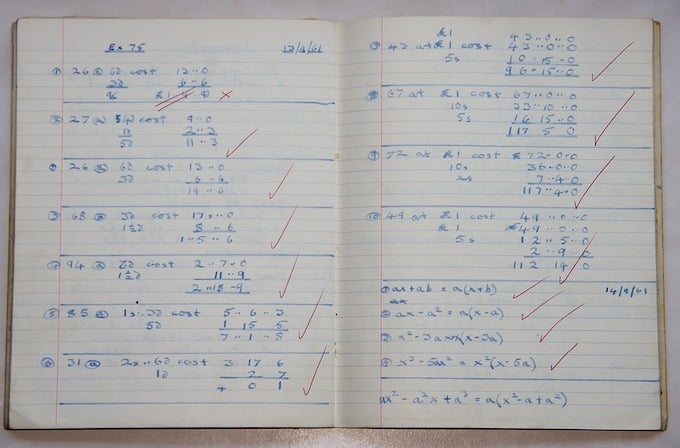 Ex 75 12/9/61
① 26 @ 6d cost 13 ·· 0
3d 6 ·· 6
27 @ 4d cost 9 ·· 0
1d 2 ·· 3
5d 11 ·· 3
26 @ 6d cost 13 ·· 0
3d 6 ·· 6
19 ·· 6
③ 68 @ 3d cost 17s ·· 0
1½d 8 ·· 6
1 ·· 5 ·· 6
④ 94 @ 6d cost 2 ·· 7 ·· 0
1½d 11 ·· 9
2 ·· 18 ·· 9
⑤ 85 @ 1s ·· 3d cost 5 ·· 6 ·· 3
5d 1 15 5
7 ·· 1 ·· 8
⑥ 31 @ 2s ·· 6d cost 3 17 6
1d 2 7
4 0 1
£1 43 ·· 0 ·· 0
⑦ 43 at £1 cost 43 ·· 0 ·· 0
5s 10 ·· 15 ·· 0
96 ·· 15 ·· 0
⑧ 67 at £1 cost 67 ·· 0 ·· 0
10s 33 ·· 10 ·· 0
5s 16 15 ·· 0
117 5 0
⑨ 72 at £1 cost £72 ·· 0 ·· 0
10s 36 ·· 0 ·· 0
2s 7 ·· 4 ·· 0
117 ·· 4 ·· 0
⑩ 49 at £1 cost 49 ·· 0 ·· 0
£1 49 ·· 0 ·· 0
5s 12 ·· 5 ·· 0
2 ·· 9 ·· 0
112 14 0
① ax + ab = a(x+b) 14/9/61
② ax - a² = a(x-a)
③ x² - 3ax = x(x-3a)
④ x³ - 5ax² = x²(x-5a)
ax² - a²x + a³ = a(x²-a+a²)